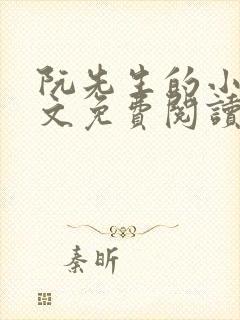 阮先生的小
文免費閱讀
秦昕